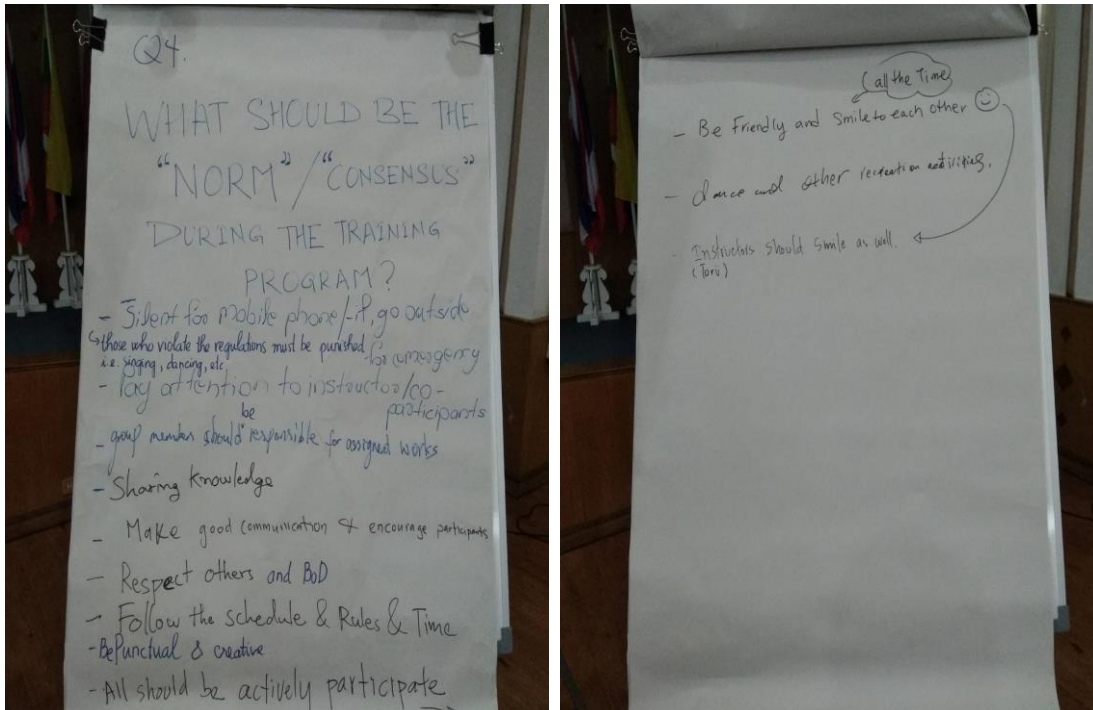 Q4.
WHAT SHOULD BE THE
"NORM" / "CONSENSUS"
DURING THE TRAINING
PROGRAM?
- Silent for mobile phone/-if, go outside
for emergency
those who violate the regulations must be punished
i.e. singing, dancing, etc
- Pay attention to instructor/co-
participants
- group member should be responsible for assigned works
- Sharing knowledge
- Make good communication & encourage participants
- Respect others and BoD
- Follow the schedule & Rules & Time
- Be Punctual & creative
- All should be actively participate
(all the Time)
- Be Friendly and Smile to each other
- dance and other recreation activities.
- Instructors should smile as well.
(Toru)